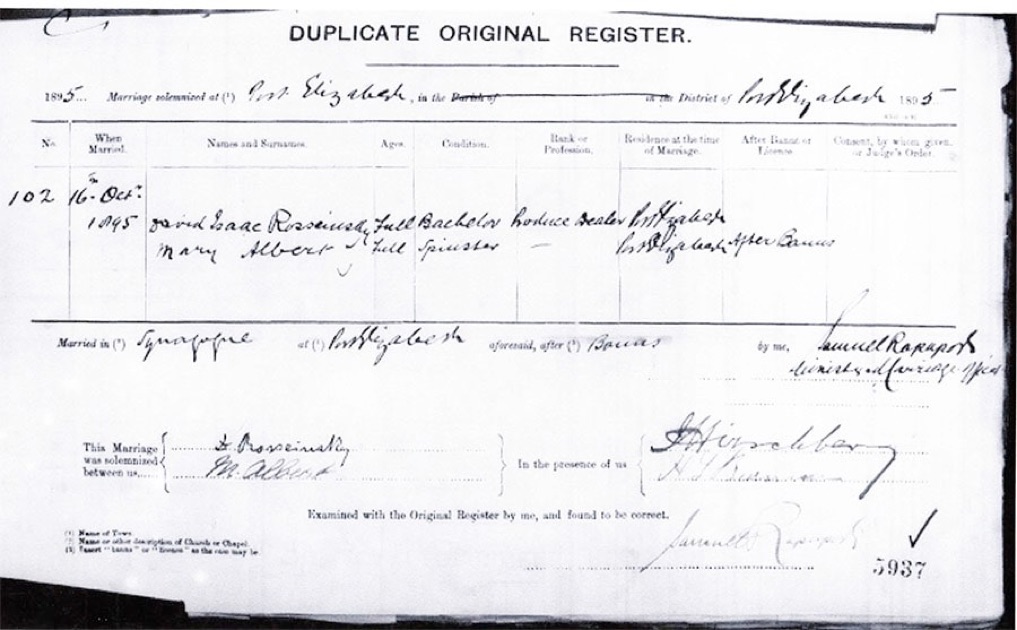 DUPLICATE ORIGINAL REGISTER.
1895... Marriage solemnized at (¹) Port Elizabeth, in the Parish of in the District of Port Elizabeth 1895
No. When Married. Names and Surnames. Ages. Condition. Rank or Profession. Residence at the time of Marriage. After Banns or License. Consent, by whom given, or Judge's Order.
102 16th Octr.
1895 David Isaac Rosseinsky Full Bachelor Produce Dealer Port Elizabeth
Mary Albert Full Spinster — Port Elizabeth After Banns
Married in (²) Synagogue at (¹) Port Elizabeth aforesaid, after (³) Banns by me, Samuel Rapaport
Minister & Marriage Officer
This Marriage was solemnized between us,.... D. Rosseinsky
M. Albert
In the presence of us
Hirschberg
Examined with the Original Register by me, and found to be correct.
Samuel Rapaport
(1) Name of Town.
(2) Name or other description of Church or Chapel.
(3) Insert "banns" or "license" as the case may be.
5937